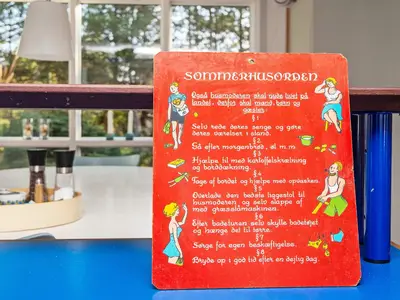 SOMMERHUSORDEN
Også husmoderen skal nyde livet på
landet - derfor skal mand, børn og
gæster:
§ 1
Selv rede deres senge og gøre
deres værelser i stand.
§ 2
Så efter morgenbrød, øl m.m.
§ 3
Hjælpe til med kartoffelskrælning
og borddækning.
§ 4
Tage af bordet og hjælpe med opvasken.
§ 5
Overlade den bedste liggestol til
husmoderen og selv slappe af
med græsslåmaskinen.
§ 6
Efter badeturen selv skylle badetøjet
og hænge det til tørre.
§ 7
Sørge for egen beskæftigelse.
§ 8
Bryde op i god tid efter en dejlig dag.